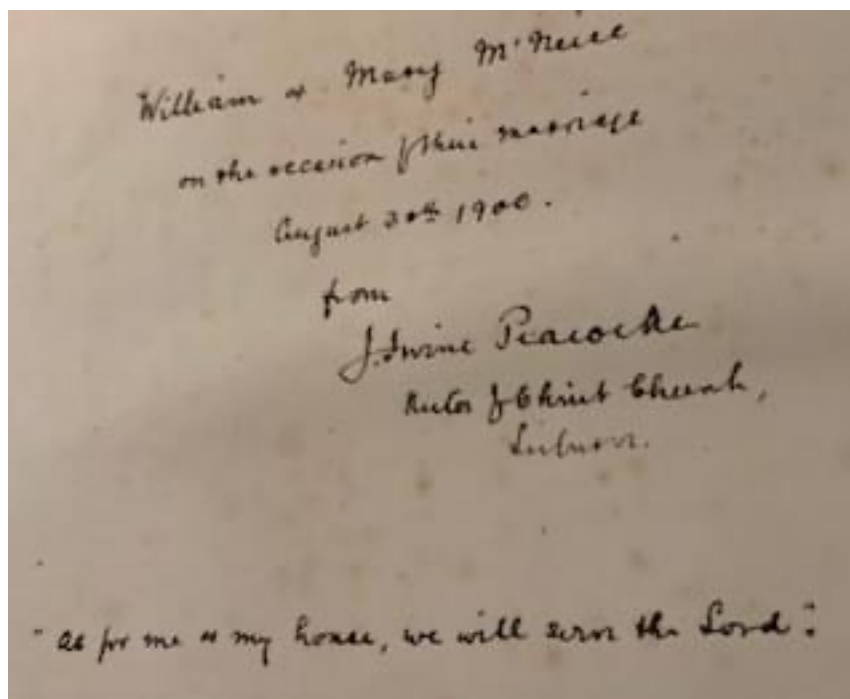 William & Mary McNeice
on the occasion of their marriage
August 30th 1900.
from
J. Irvine Peacocke
Rector of Christ Church,
Lisburn.
"as for me & my house, we will serve the Lord".